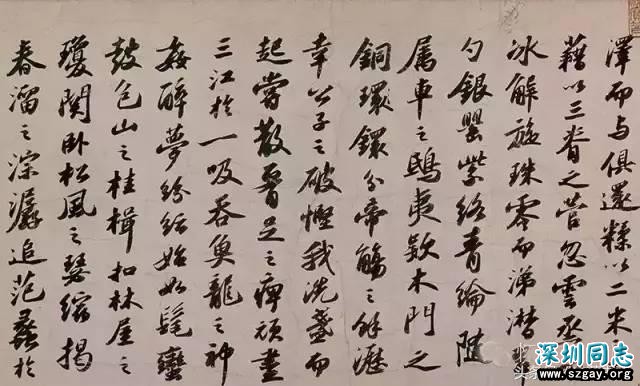 澤而与俱還糅以二米
藉以三脊之菅忽雲烝
冰解旋珠零而涕潸
勺銀罌紫絡青綸随
属車之鴟夷欵木門之
銅環鐶分帝觴之餘瀝
幸公子之破慳我洗盞而
起嘗散腰足之痺頑盡
三江於一吸吞魚龍之神
姦醉夢紛紜始如髦蠻
鼓包山之桂楫扣林屋之
瓊関卧松風之瑟縮揭
春溜之淙潺追范蠡於
深圳同志
www.szgay.org